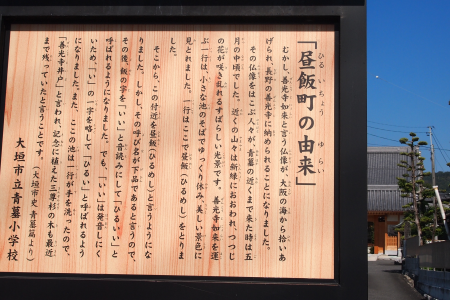 「昼飯町の由来」
ひる いちょう ゆらい
むかし、善光寺如来と言う仏像が、大阪の海から拾いあ
げられ、長野の善光寺に納められることになりました。
その仏像をはこぶ人々が、青墓の近くまで来た時は五
月の中頃でした。近くの山々は新緑におおわれ、つつじ
の花が咲き乱れるすばらしい光景です。善光寺如来を運
ぶ一行は、小さな池のそばでゆっくり休み、美しい景色に
見とれました。一行はここで昼飯（ひるめし）をとりま
した。
そこから、この付近を昼飯（ひるめし）と言うようにな
りました。しかし、その呼び名が下品であると言うので、
その後、飯の字を「いい」と音読みにして「ひるいい」と
呼ばれるようになりました。でも、「いい」は発音しにく
いため、「い」の一字を略して「ひるい」と呼ばれるよう
になりました。また、ここの池は一行が手を洗ったので、
「善光寺井戸」と言われ、記念に植えた三尊杉の木も最近
まで残っていたと言うことです。
（大垣市史 青墓篇より）
大垣市立青墓小学校